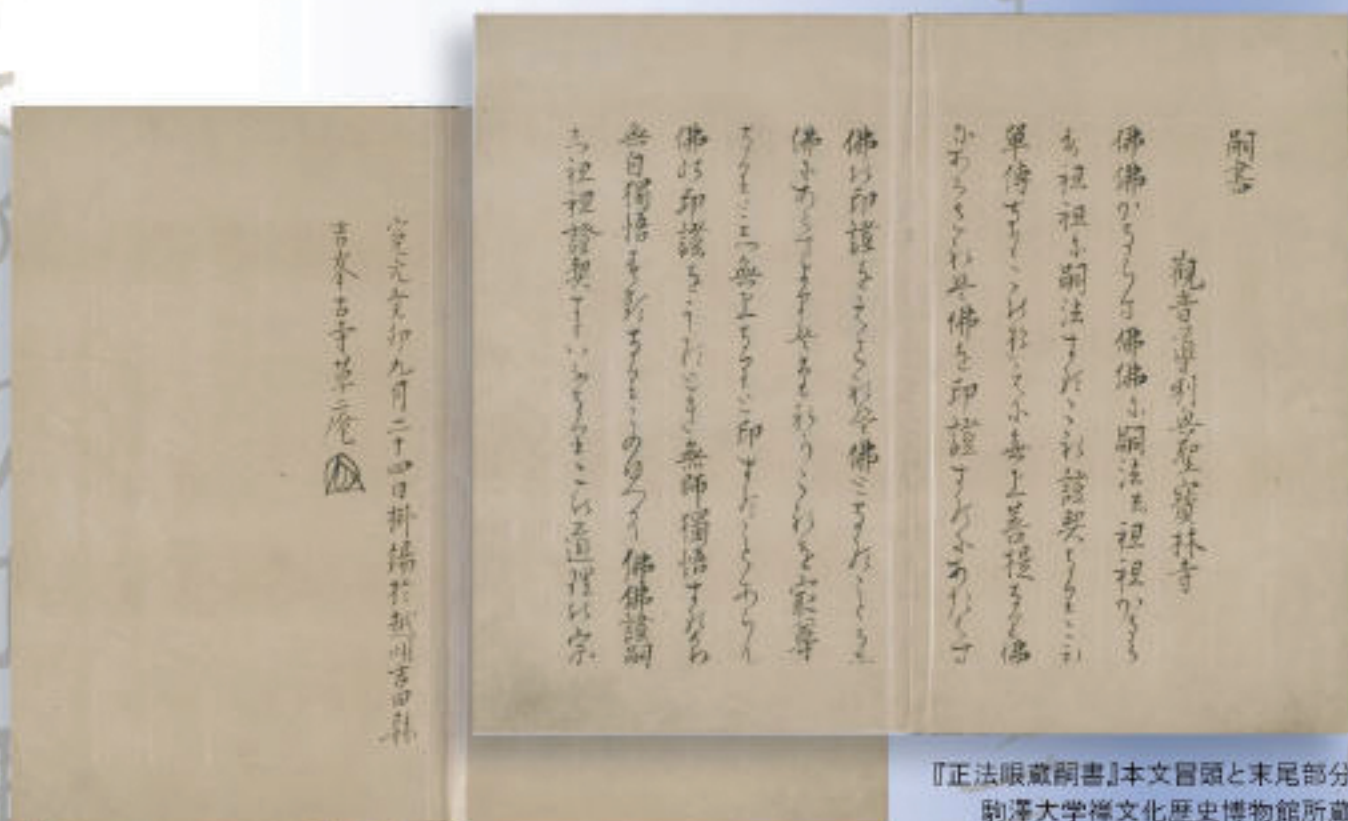 嗣書
觀音導利興聖寶林寺
佛佛かならす佛佛に嗣法し祖祖かなら
す祖祖に嗣法するこれ證契なりこれ
單傳なりこのゆへに無上菩提なり佛
にあらされは佛を印證するにあたはす
佛の印證をえされは佛となることなし
佛にあらすよりはたれかこれを最尊
なりとし無上なりと印することあらん
佛の印證をうるとき無師獨悟するなり
無自獨悟するなりこのゆへに佛佛證嗣
し祖祖證契すといふなりこの道理の宗
寛元癸卯九月二十四日掛錫於越州吉田縣
吉峯古寺草庵
『正法眼蔵嗣書』本文冒頭と末尾部分
駒澤大学禅文化歴史博物館所蔵